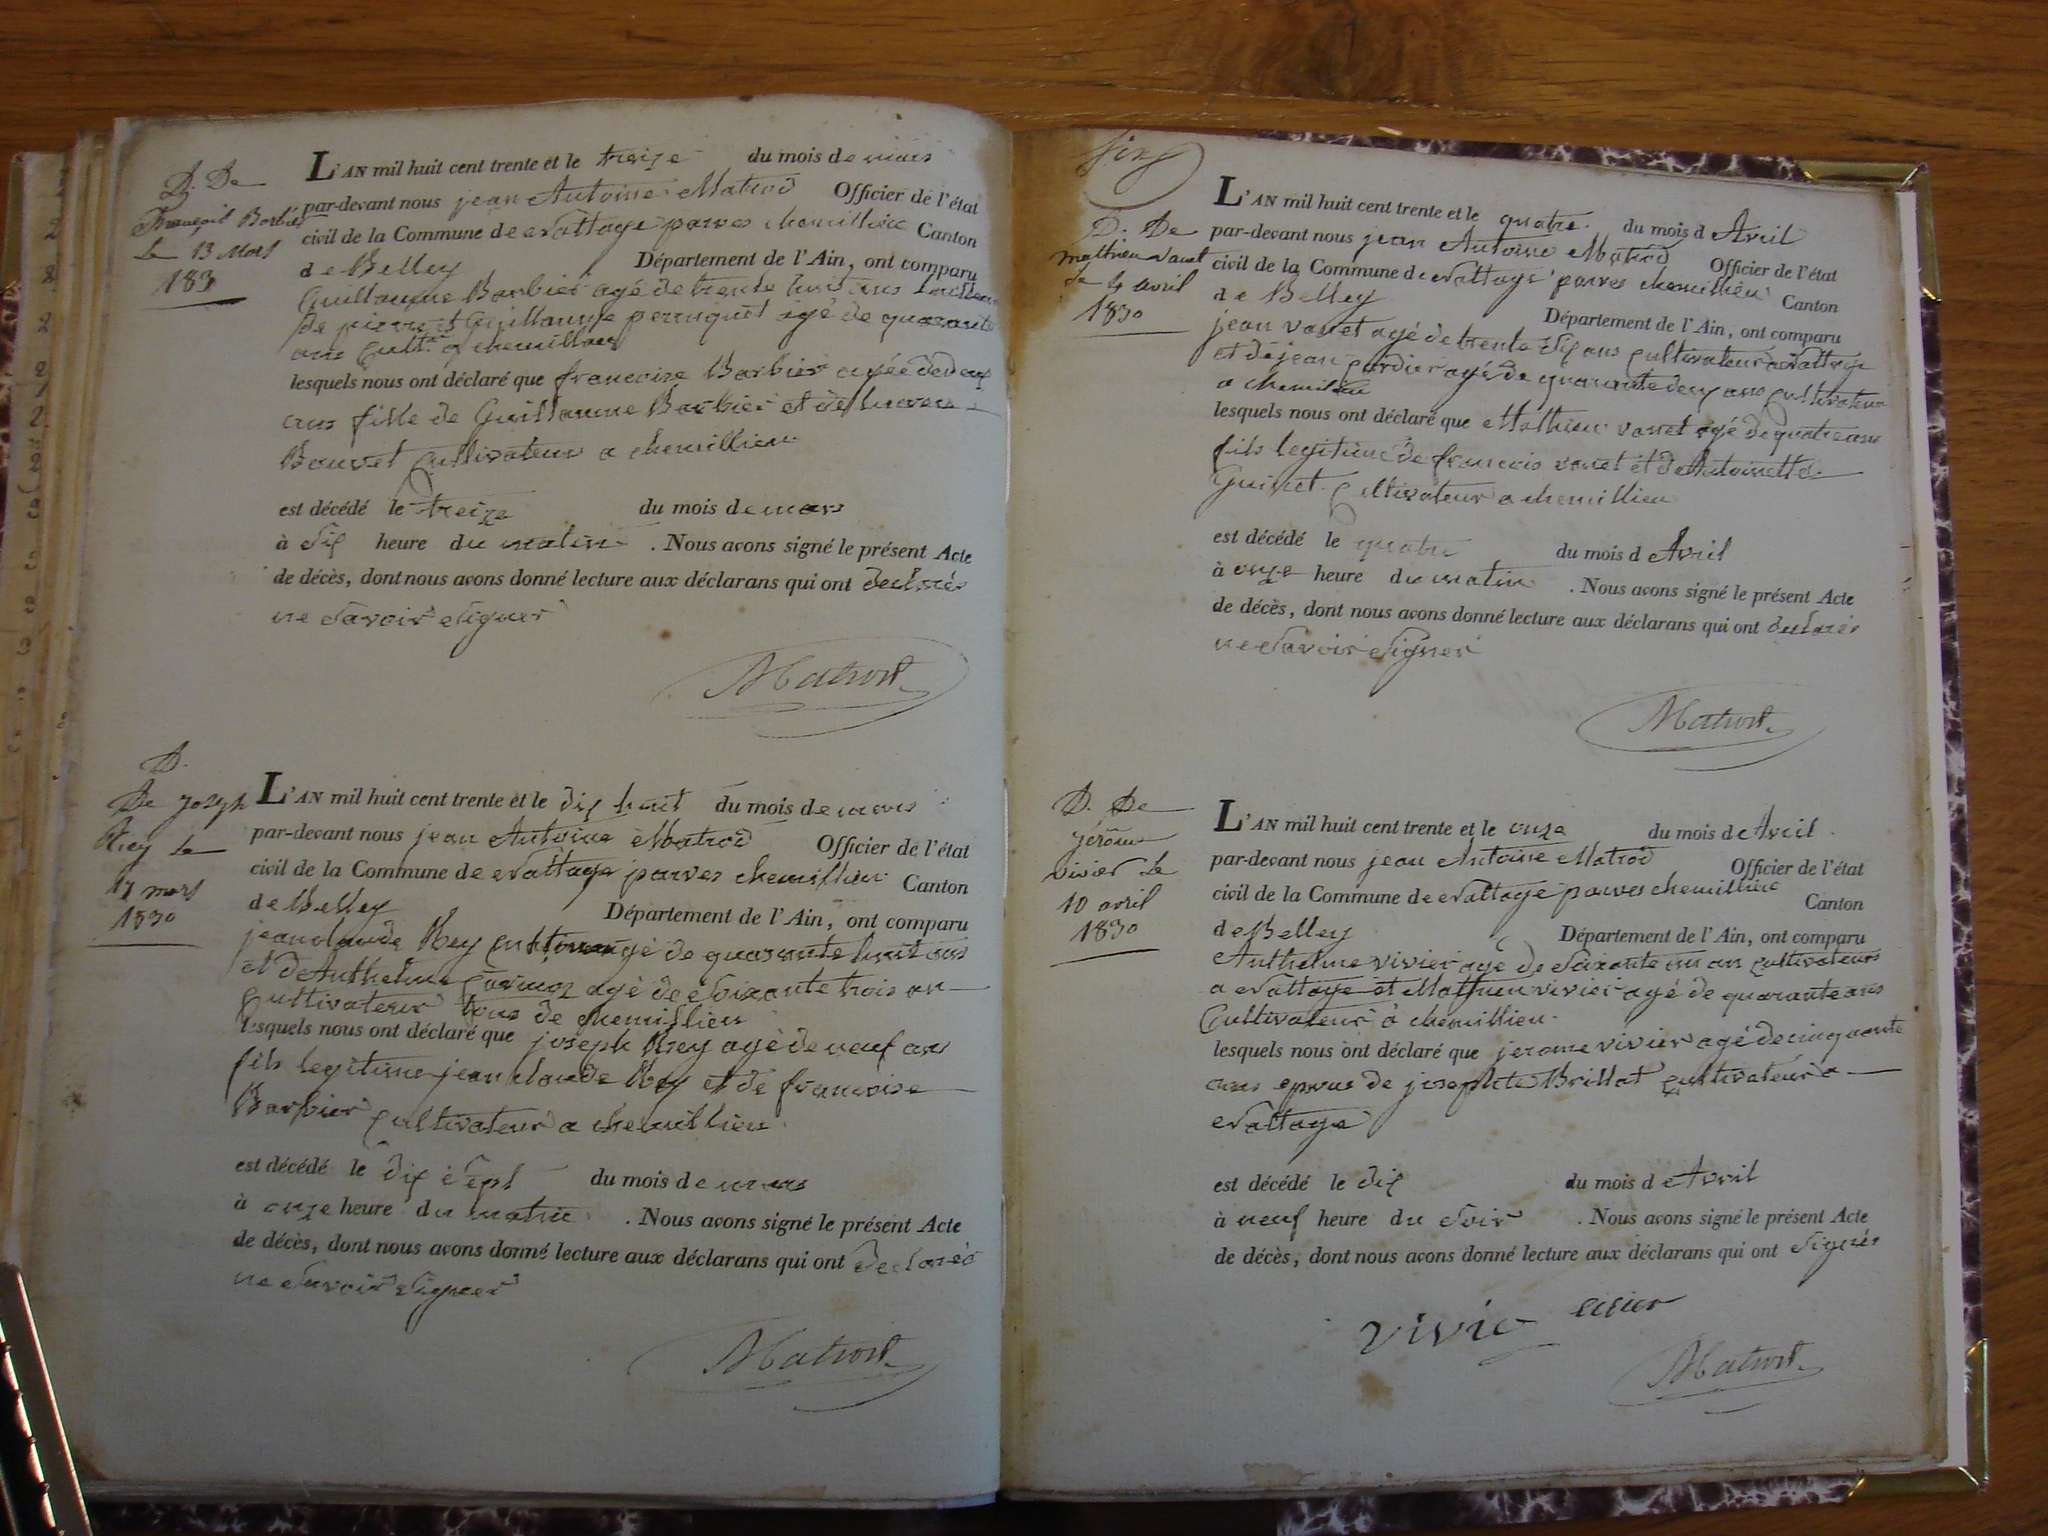 D. De
François Barbier
Le 13 Mars
183
L'AN mil huit cent trente et le treize du mois de mars
par-devant nous jean Antoine Matrod Officier de l'état
civil de la Commune de Nattage parves chemillieu Canton
de Belley Département de l'Ain, ont comparu
Guillaume Barbier agé de trente huit ans
De pierre et Guillaume perruquet agé de quarante
ans cultr a chemillieu
lesquels nous ont déclaré que francoise Barbier agée de deux
ans fille de Guillaume Barbier et de
Bouvet cultivateur a chemillieu
est décédé le treize du mois de mars
à dix heure du matin . Nous avons signé le présent Acte
de décès, dont nous avons donné lecture aux déclarans qui ont declarés
ne Savoir Signer
Matrod
D.
De Joseph
Rey Le
17 mars
1830
L'AN mil huit cent trente et le dix huit du mois de mars
par-devant nous jean Antoine Matrod Officier de l'état
civil de la Commune de Nattage parves chemillieu Canton
de Belley Département de l'Ain, ont comparu
jeanclaude Rey agé de quarante huit ans
et d'Anthelme agé de Soixante trois an
Cultivateur tous de chemillieu
lesquels nous ont déclaré que joseph Rey agé de neuf ans
fils legitime jean claude Rey et de francoise
Barbier cultivateur a chemillieu
est décédé le dix Sept du mois de mars
à onze heure du matin . Nous avons signé le présent Acte
de décès, dont nous avons donné lecture aux déclarans qui ont declarés
ne Savoir Signer
Matrod
Six
D. De
mathieu Vanet
de 4 avril
1830
L'AN mil huit cent trente et le quatre du mois d Avril
par-devant nous jean Antoine Matrod Officier de l'état
civil de la Commune de Nattage parves chemillieu Canton
de Belley Département de l'Ain, ont comparu
jean vanet agé de trente Six ans Cultivateur a Nattage
et de jean agé de quarante deux ans Cultivateur
a chemillieu
lesquels nous ont déclaré que Mathieu vanet agé de quatre ans
fils legitime de francois vanet et de Antoinette
Guinet Cultivateur a chemillieu
est décédé le quatre du mois d Avril
à onze heure du matin . Nous avons signé le présent Acte
de décès, dont nous avons donné lecture aux déclarans qui ont declarés
ne Savoir Signer
Matrod
D. De
jérôme
vivier Le
10 avril
1830
L'AN mil huit cent trente et le onze du mois d Avril
par-devant nous jean Antoine Matrod Officier de l'état
civil de la Commune de Nattage parves chemillieu Canton
de Belley Département de l'Ain, ont comparu
Anthelme vivier agé de Soixante un an Cultivateurs
a Nattage et Mathieu vivier agé de quarante ans
Cultivateur a chemillieu
lesquels nous ont déclaré que jerome vivier agé de cinquante
ans epoux de josephte Brillat Cultivateur a
Nattage
est décédé le dix du mois d Avril
à neuf heure du Soir . Nous avons signé le présent Acte
de décès, dont nous avons donné lecture aux déclarans qui ont Signés
vivier
Matrod